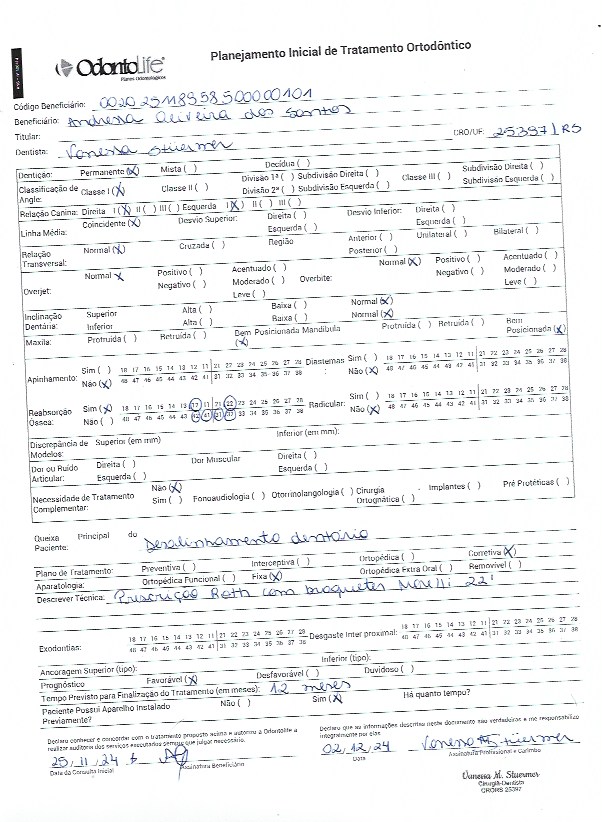 Planejamento Inicial de Tratamento Ortodôntico
OdontoLife
Planos Odontológicos
Código Beneficiário: 00202511895850000101
Beneficiário: Andressa Oliveira dos Santos
Titular:
Dentista: Vanessa Stüermer CRO/UF: 25397/RS
Dentição: Permanente (X) Mista ( ) Decídua ( )
Classificação de Angle: Classe I (X) Classe II ( ) Divisão 1ª ( ) Subdivisão Direita ( ) Classe III ( ) Subdivisão Direita ( )
Divisão 2ª ( ) Subdivisão Esquerda ( ) Subdivisão Esquerda ( )
Relação Canina: Direita I (X) II ( ) III ( ) Esquerda I (X) II ( ) III ( )
Linha Média: Coincidente (X) Desvio Superior: Direita ( ) Desvio Inferior: Direita ( )
Esquerda ( ) Esquerda ( )
Relação Transversal: Normal (X) Cruzada ( ) Região Anterior ( ) Unilateral ( ) Bilateral ( )
Posterior ( )
Overjet: Normal X Positivo ( ) Acentuado ( ) Overbite: Normal (X) Positivo ( ) Acentuado ( )
Negativo ( ) Moderado ( ) Negativo ( ) Moderado ( )
Leve ( ) Leve ( )
Inclinação Dentária: Superior Alta ( ) Baixa ( ) Normal (X)
Inferior Alta ( ) Baixa ( ) Normal (X)
Maxila: Protruída ( ) Retruída ( ) Bem Posicionada (X) Mandíbula Protruída ( ) Retruída ( ) Bem Posicionada (X)
Apinhamento: Sim ( ) 18 17 16 15 14 13 12 11 21 22 23 24 25 26 27 28 Diastemas: Sim ( ) 18 17 16 15 14 13 12 11 21 22 23 24 25 26 27 28
Não (X) 48 47 46 45 44 43 42 41 31 32 33 34 35 36 37 38 Não (X) 48 47 46 45 44 43 42 41 31 32 33 34 35 36 37 38
Reabsorção Óssea: Sim (X) 18 17 16 15 14 13 12 11 21 22 23 24 25 26 27 28 Radicular: Sim ( ) 18 17 16 15 14 13 12 11 21 22 23 24 25 26 27 28
Não ( ) 48 47 46 45 44 43 42 41 31 32 33 34 35 36 37 38 Não (X) 48 47 46 45 44 43 42 41 31 32 33 34 35 36 37 38
Discrepância de Modelos: Superior (em mm) Inferior (em mm):
Dor ou Ruído Articular: Direita ( ) Dor Muscular Direita ( )
Esquerda ( ) Esquerda ( )
Necessidade de Tratamento Complementar: Não (X)
Sim ( ) Fonoaudiologia ( ) Otorrinolangologia ( ) Cirurgia Ortognática ( ) Implantes ( ) Pré Protéticas ( )
Queixa Principal do Paciente: Desalinhamento dentário
Plano de Tratamento: Preventiva ( ) Interceptiva ( ) Ortopédica ( ) Corretiva (X)
Aparatologia: Ortopédica Funcional ( ) Fixa (X) Ortopédica Extra Oral ( ) Removível ( )
Descrever Técnica: Prescrição Roth com braquetes Morelli 22"
Exodontias: 18 17 16 15 14 13 12 11 21 22 23 24 25 26 27 28 Desgaste Inter proximal: 18 17 16 15 14 13 12 11 21 22 23 24 25 26 27 28
48 47 46 45 44 43 42 41 31 32 33 34 35 36 37 38 48 47 46 45 44 43 42 41 31 32 33 34 35 36 37 38
Ancoragem Superior (tipo): Inferior (tipo):
Prognóstico Favorável (X) Desfavorável ( ) Duvidoso ( )
Tempo Previsto para Finalização do Tratamento (em meses): 12 meses
Paciente Possui Aparelho Instalado Previamente? Não ( ) Sim (X) Há quanto tempo?
Declaro conhecer e concordar com o tratamento proposto acima e autorizo a Odontolife a realizar auditoria dos serviços executados sempre que julgar necessário.
Declaro que as informações descritas neste documento são verdadeiras e me responsabilizo integralmente por elas
25.11.24
Data da Consulta Inicial Assinatura Beneficiário
02.12.24 Vanessa Stüermer
Data Assinatura Profissional e Carimbo
Vanessa M. Stuermer
Cirurgiã-Dentista
CRORS 25397